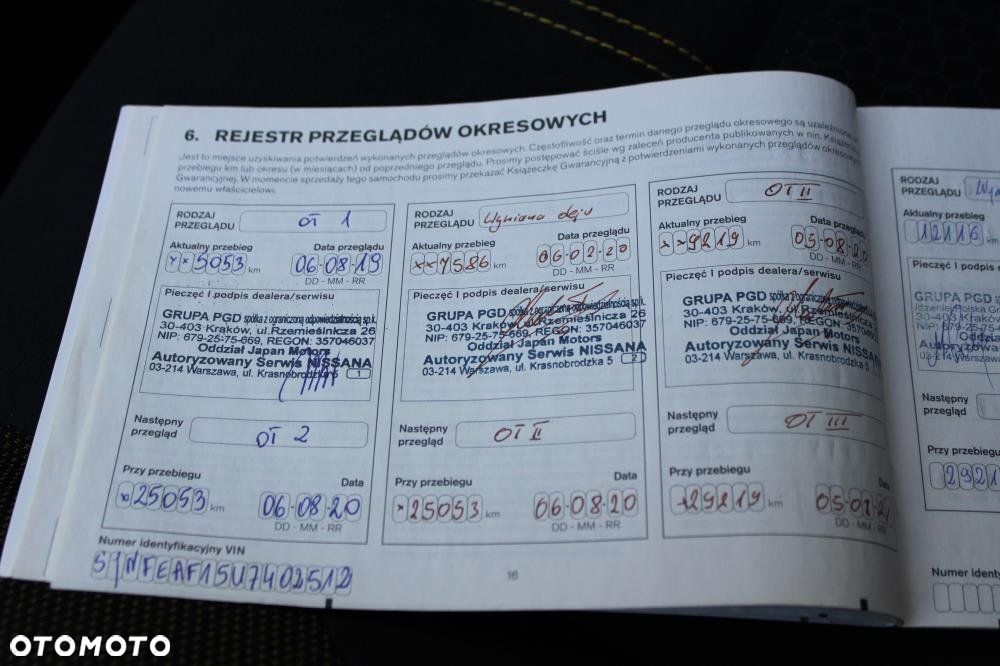 6. REJESTR PRZEGLĄDÓW OKRESOWYCH
Jest to miejsce uzyskiwania potwierdzeń wykonanych przeglądów okresowych. Częstotliwość oraz termin danego przeglądu okresowego są uzależnione od
przebiegu km lub okresu (w miesiącach) od poprzedniego przeglądu. Prosimy postępować ściśle wg zaleceń producenta publikowanych w nin. Książeczce
Gwarancyjnej. W momencie sprzedaży tego samochodu prosimy przekazać Książeczkę Gwarancyjną z potwierdzeniami wykonanych przeglądów okresowych
nowemu właścicielowi.
RODZAJ
PRZEGLĄDU OT 1
Aktualny przebieg Data przeglądu
xx5053 km 06-08-19
DD - MM - RR
Pieczęć I podpis dealera/serwisu
GRUPA PGD spółka z ograniczoną odpowiedzialnością sp.k.
30-403 Kraków, ul.Rzemieślnicza 26
NIP: 679-25-75-669, REGON: 357046037
Oddział Japan Motors
Autoryzowany Serwis NISSANA
03-214 Warszawa, ul. Krasnobrodzka 5 1
Następny
przegląd OT 2
Przy przebiegu Data
x25053 km 06-08-20
DD - MM - RR
Numer identyfikacyjny VIN
SJNFEAF15U7402512
RODZAJ
PRZEGLĄDU Wymiana oleju
Aktualny przebieg Data przeglądu
xx7586 km 06-02-20
DD - MM - RR
Pieczęć I podpis dealera/serwisu
GRUPA PGD spółka z ograniczoną odpowiedzialnością sp.k.
30-403 Kraków, ul.Rzemieślnicza 26
NIP: 679-25-75-669, REGON: 357046037
Oddział Japan Motors
Autoryzowany Serwis NISSANA
03-214 Warszawa, ul. Krasnobrodzka 5 2
Następny
przegląd OT II
Przy przebiegu Data
x25053 km 06-08-20
DD - MM - RR
RODZAJ
PRZEGLĄDU OT II
Aktualny przebieg Data przeglądu
xx9219 km 05-08-20
DD - MM - RR
Pieczęć I podpis dealera/serwisu
GRUPA PGD spółka z ograniczoną odpowiedzialnością
30-403 Kraków, ul.Rzemieślnicza
NIP: 679-25-75-669, REGON: 357046
Oddział Japan Motors
Autoryzowany Serwis NISSA
03-214 Warszawa, ul. Krasnobrodzka 5
Następny
przegląd OT III
Przy przebiegu Data
x29219 km 05-02-21
DD - MM - RR
16
RODZAJ
PRZEGLĄDU
Aktualny przebieg
12116 km
Pieczęć I podpis
GRUPA PGD
30-403 Kra
NIP: 679-25
Oddzia
Autory
Następny
przegląd
Przy przebiegu
2921
Numer identy
OTOMOTO